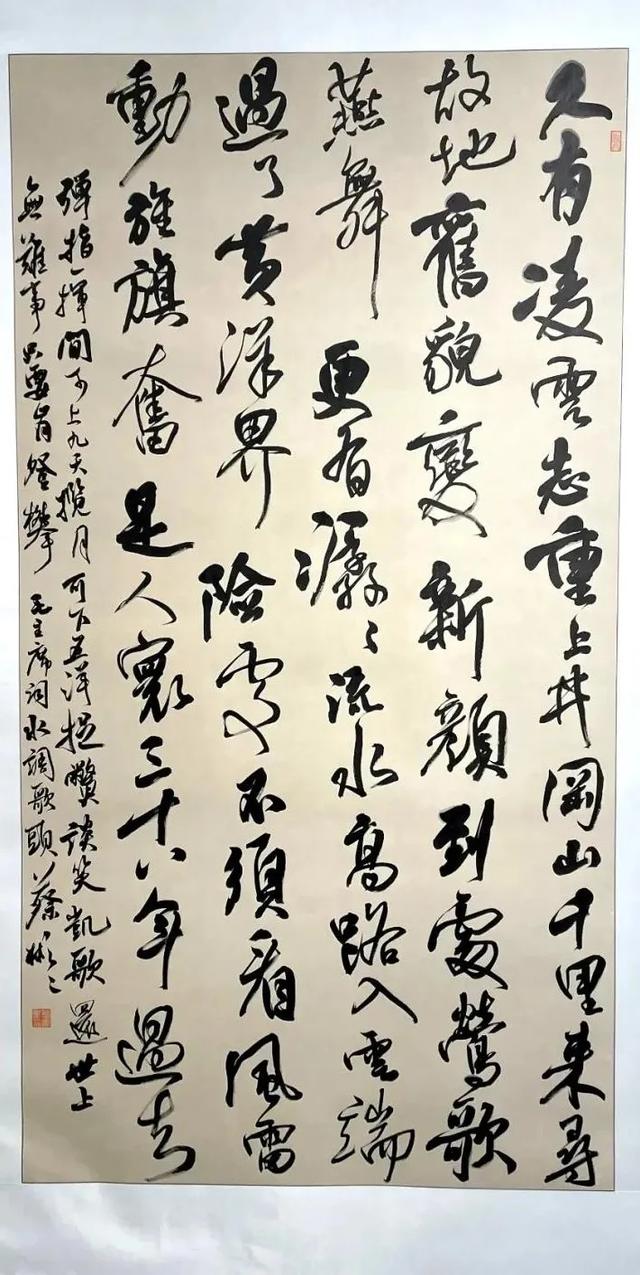 久有凌雲志重上井岡山千里来尋
故地舊貌變新顏到處鶯歌
燕舞更有潺々流水高路入雲端
過了黄洋界險處不須看風雷
動旌旗奮是人寰三十八年過去
彈指一揮間可上九天攬月可下五洋捉鱉談笑凱歌還世上
無難事只要肯登攀 毛主席詞水調歌頭 蔡彬